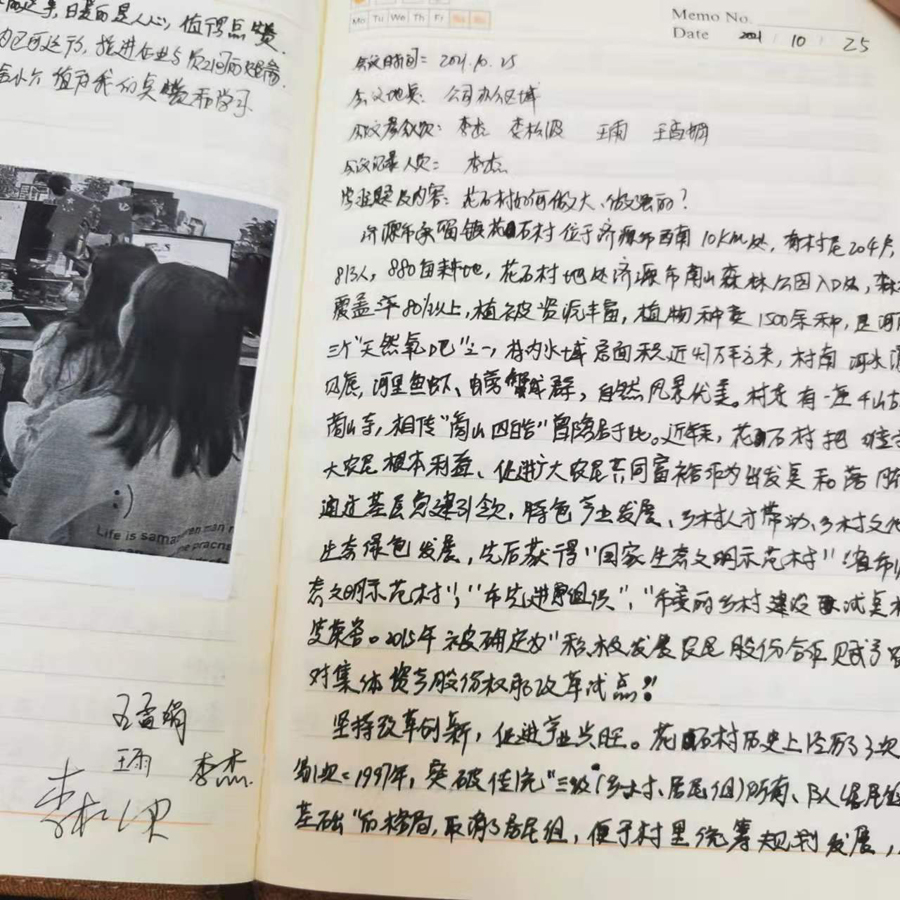 值得点赞.
推进企业与
值为我们点赞和学习
Life is
王雨
李杰.
Mo Tu We Th Fr
Memo No.
Date 2021 / 10 / 25
会议时间: 2021.10.25
会议地点: 公司办公区域
会议参会人员: 李杰 李松波 王雨 王孟娟
会议记录人员: 李杰
学习主题及内容: 花石村如何做大、做强的?
济源市承留镇花石村位于济源市西南10km处, 有村民204户,
813人, 880亩耕地, 花石村地处济源市南山森林公园入口处, 森林
覆盖率80%以上, 植被资源丰富, 植物种类1500余种, 是河南
三个"天然氧吧"之一, 村内水域面积近4万平方米, 村南河水清
见底, 河里鱼虾、螃蟹成群, 自然风景优美。村东有一座千山古
商山寺, 相传"商山四皓"曾隐居于此。近年来, 花石村把维
大农民根本利益、促进广大农民共同富裕作为出发点和落脚
通过基层党建引领, 特色产业发展、乡村人才带动、乡村文化
生态绿色发展, 先后获得"国家生态文明示范村"
态文明示范村"; "市先进组织", "市美丽乡村建设试点村
等荣誉。2015年被确定为"积极发展农民股份合作赋予农
对集体资产股份权能改革试点"!
坚持改革创新, 促进产业兴旺。花石村历史上经历了3次
1997年, 突破传统"三级(乡、村、居民组)所有、队(居民组
基础"的格局, 取消了居民组, 便于村里统筹规划发展,